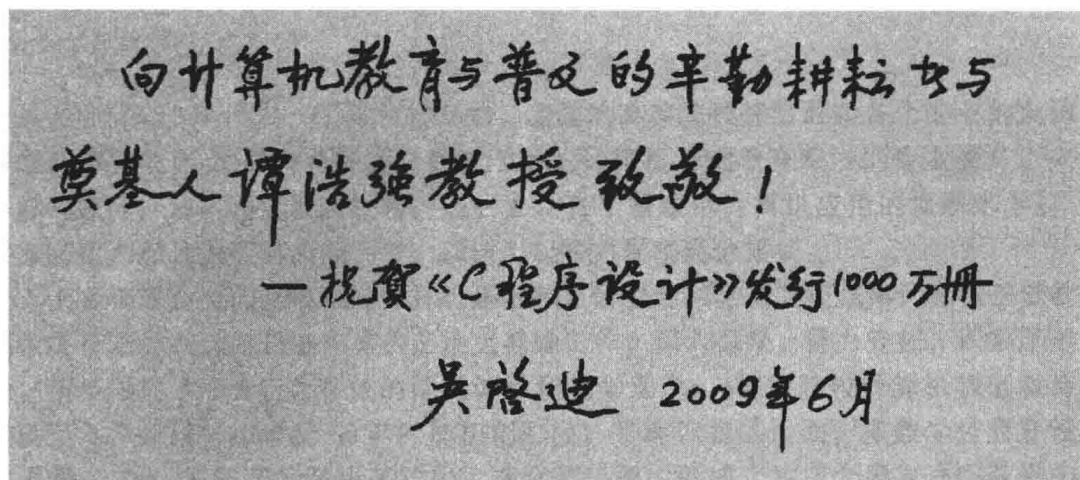 向计算机教育与普及的辛勤耕耘者与
奠基人谭浩强教授致敬！
—祝贺《C程序设计》发行1000万册
吴啓迪 2009年6月